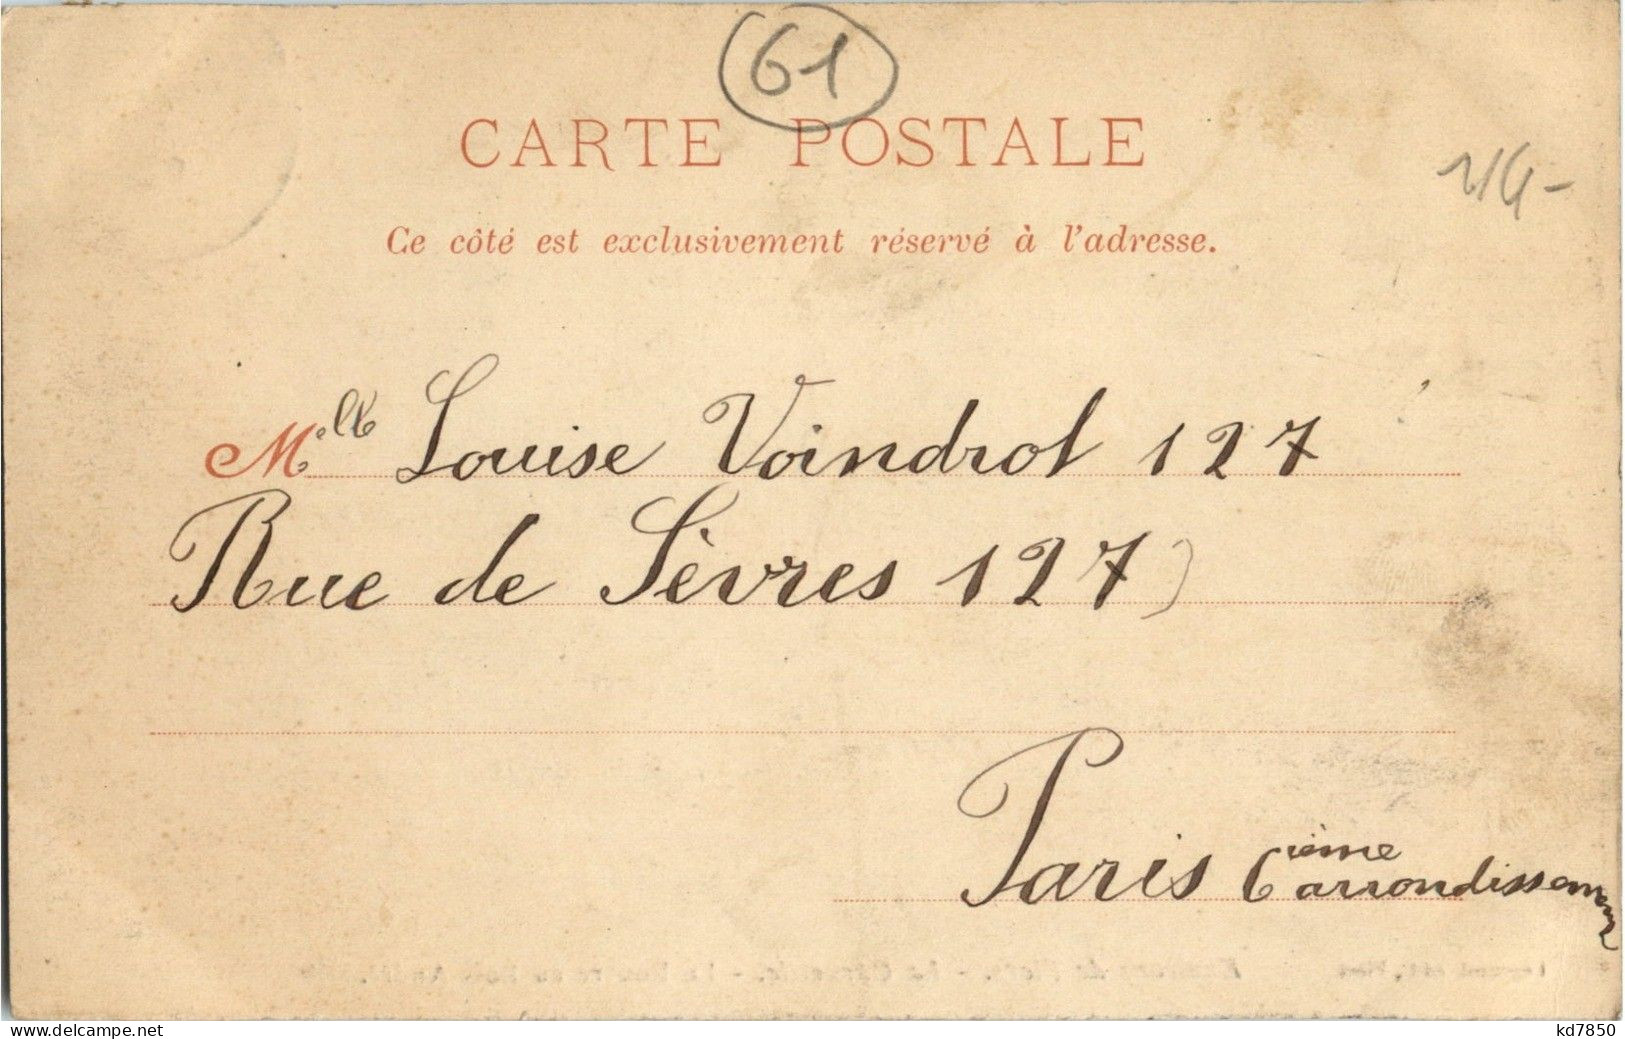 61
CARTE POSTALE
1/4-
Ce côté est exclusivement réservé à l'adresse.
Mlle Louise Voindrot 127
Rue de Sèvres 127)
Paris 6ième arrondissement
kd7850